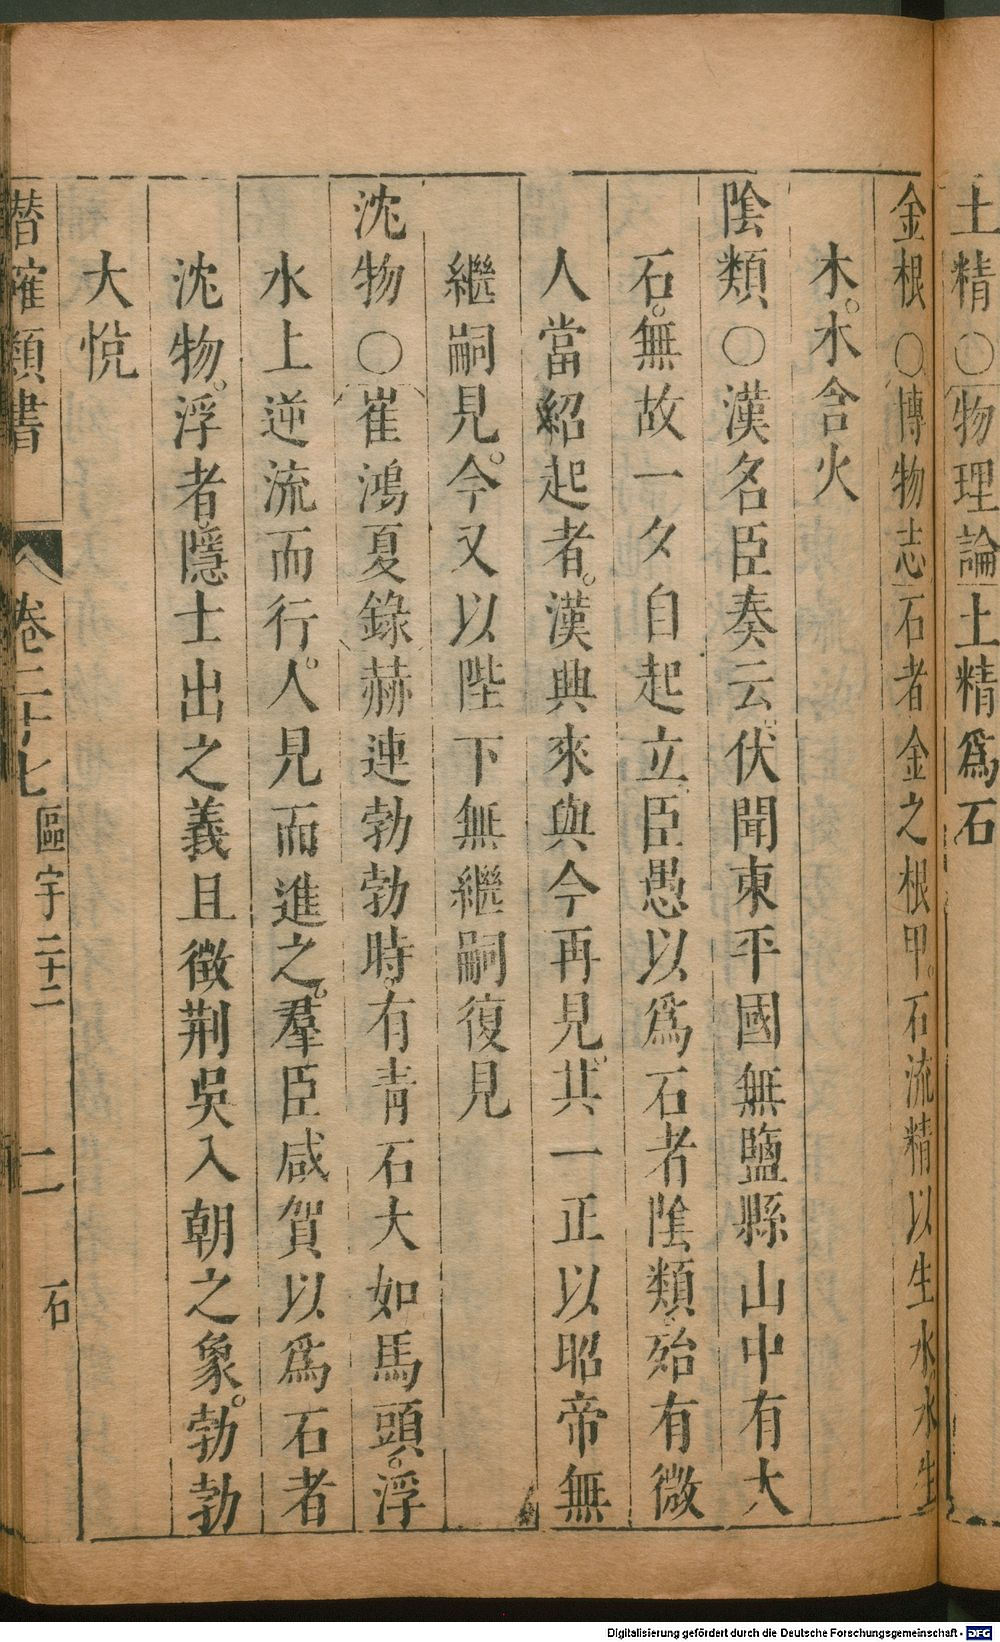 土精○物理論土精爲石
金根○博物志石者金之根甲。石流精以生水水生
木。水含火
陰類○漢名臣奏云伏聞東平國無鹽縣山中有大
石。無故一夕自起立臣愚以爲石者陰類殆有微
人當紹起者。漢興來與今再見其一正以昭帝無
繼嗣見。今又以陛下無繼嗣復見
沈物○崔鴻夏錄赫連勃勃時。有青石大如馬頭。浮
水上逆流而行。人見而進之。羣臣咸賀以爲石者
沈物。浮者隱士出之義且徵荆吳入朝之象。勃勃
大悅
潛確類書 卷二十七 區宇二十二 二 石
Digitalisierung gefördert durch die Deutsche Forschungsgemeinschaft - DFG